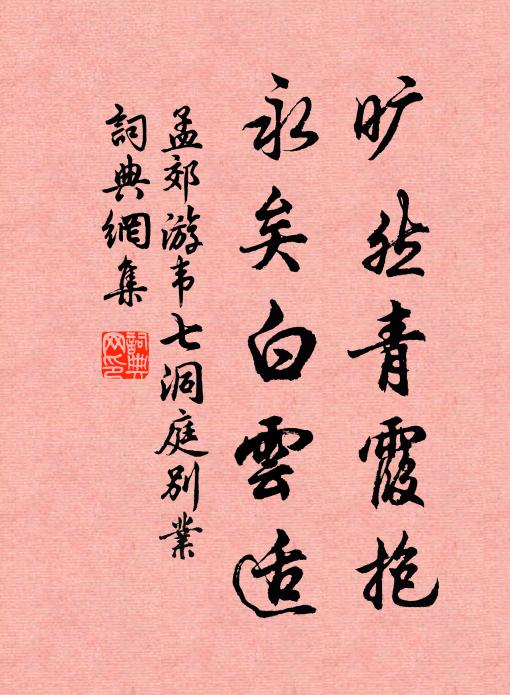 旷然青霞抱
永矣白雲适
孟郊游韦七洞庭别業
詞典網集
詞典
网印